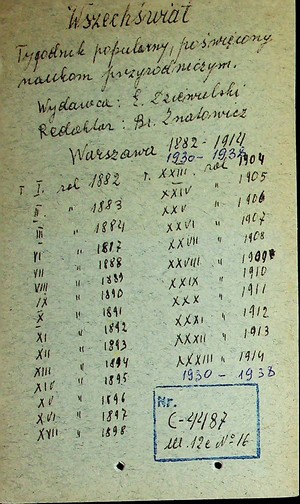 Wszechświat
Tygodnik popularny, poświęcony
naukom przyrodniczym.
Wydawca: E. Dziewulski
Redaktor: Br. Znatowicz
Warszawa 1882 - 1914
1930 - 1938
T. I. rok 1882 T. XXIII. rok 1904
II. " 1883 XXIV " 1905
III " 1884 XXV " 1906
VI " 1887 XXVI " 1907
VII " 1888 XXVII " 1908
VIII " 1889 XXVIII " 1909
IX " 1890 XXIX " 1910
X " 1891 XXX " 1911
XI " 1892 XXXI " 1912
XII " 1893 XXXII " 1913
XIII " 1894 XXXIII " 1914
XIV " 1895 1930 - 1938
XV " 1896
XVI " 1897
XVII " 1898
Nr.
C-4487
12e Nº 16